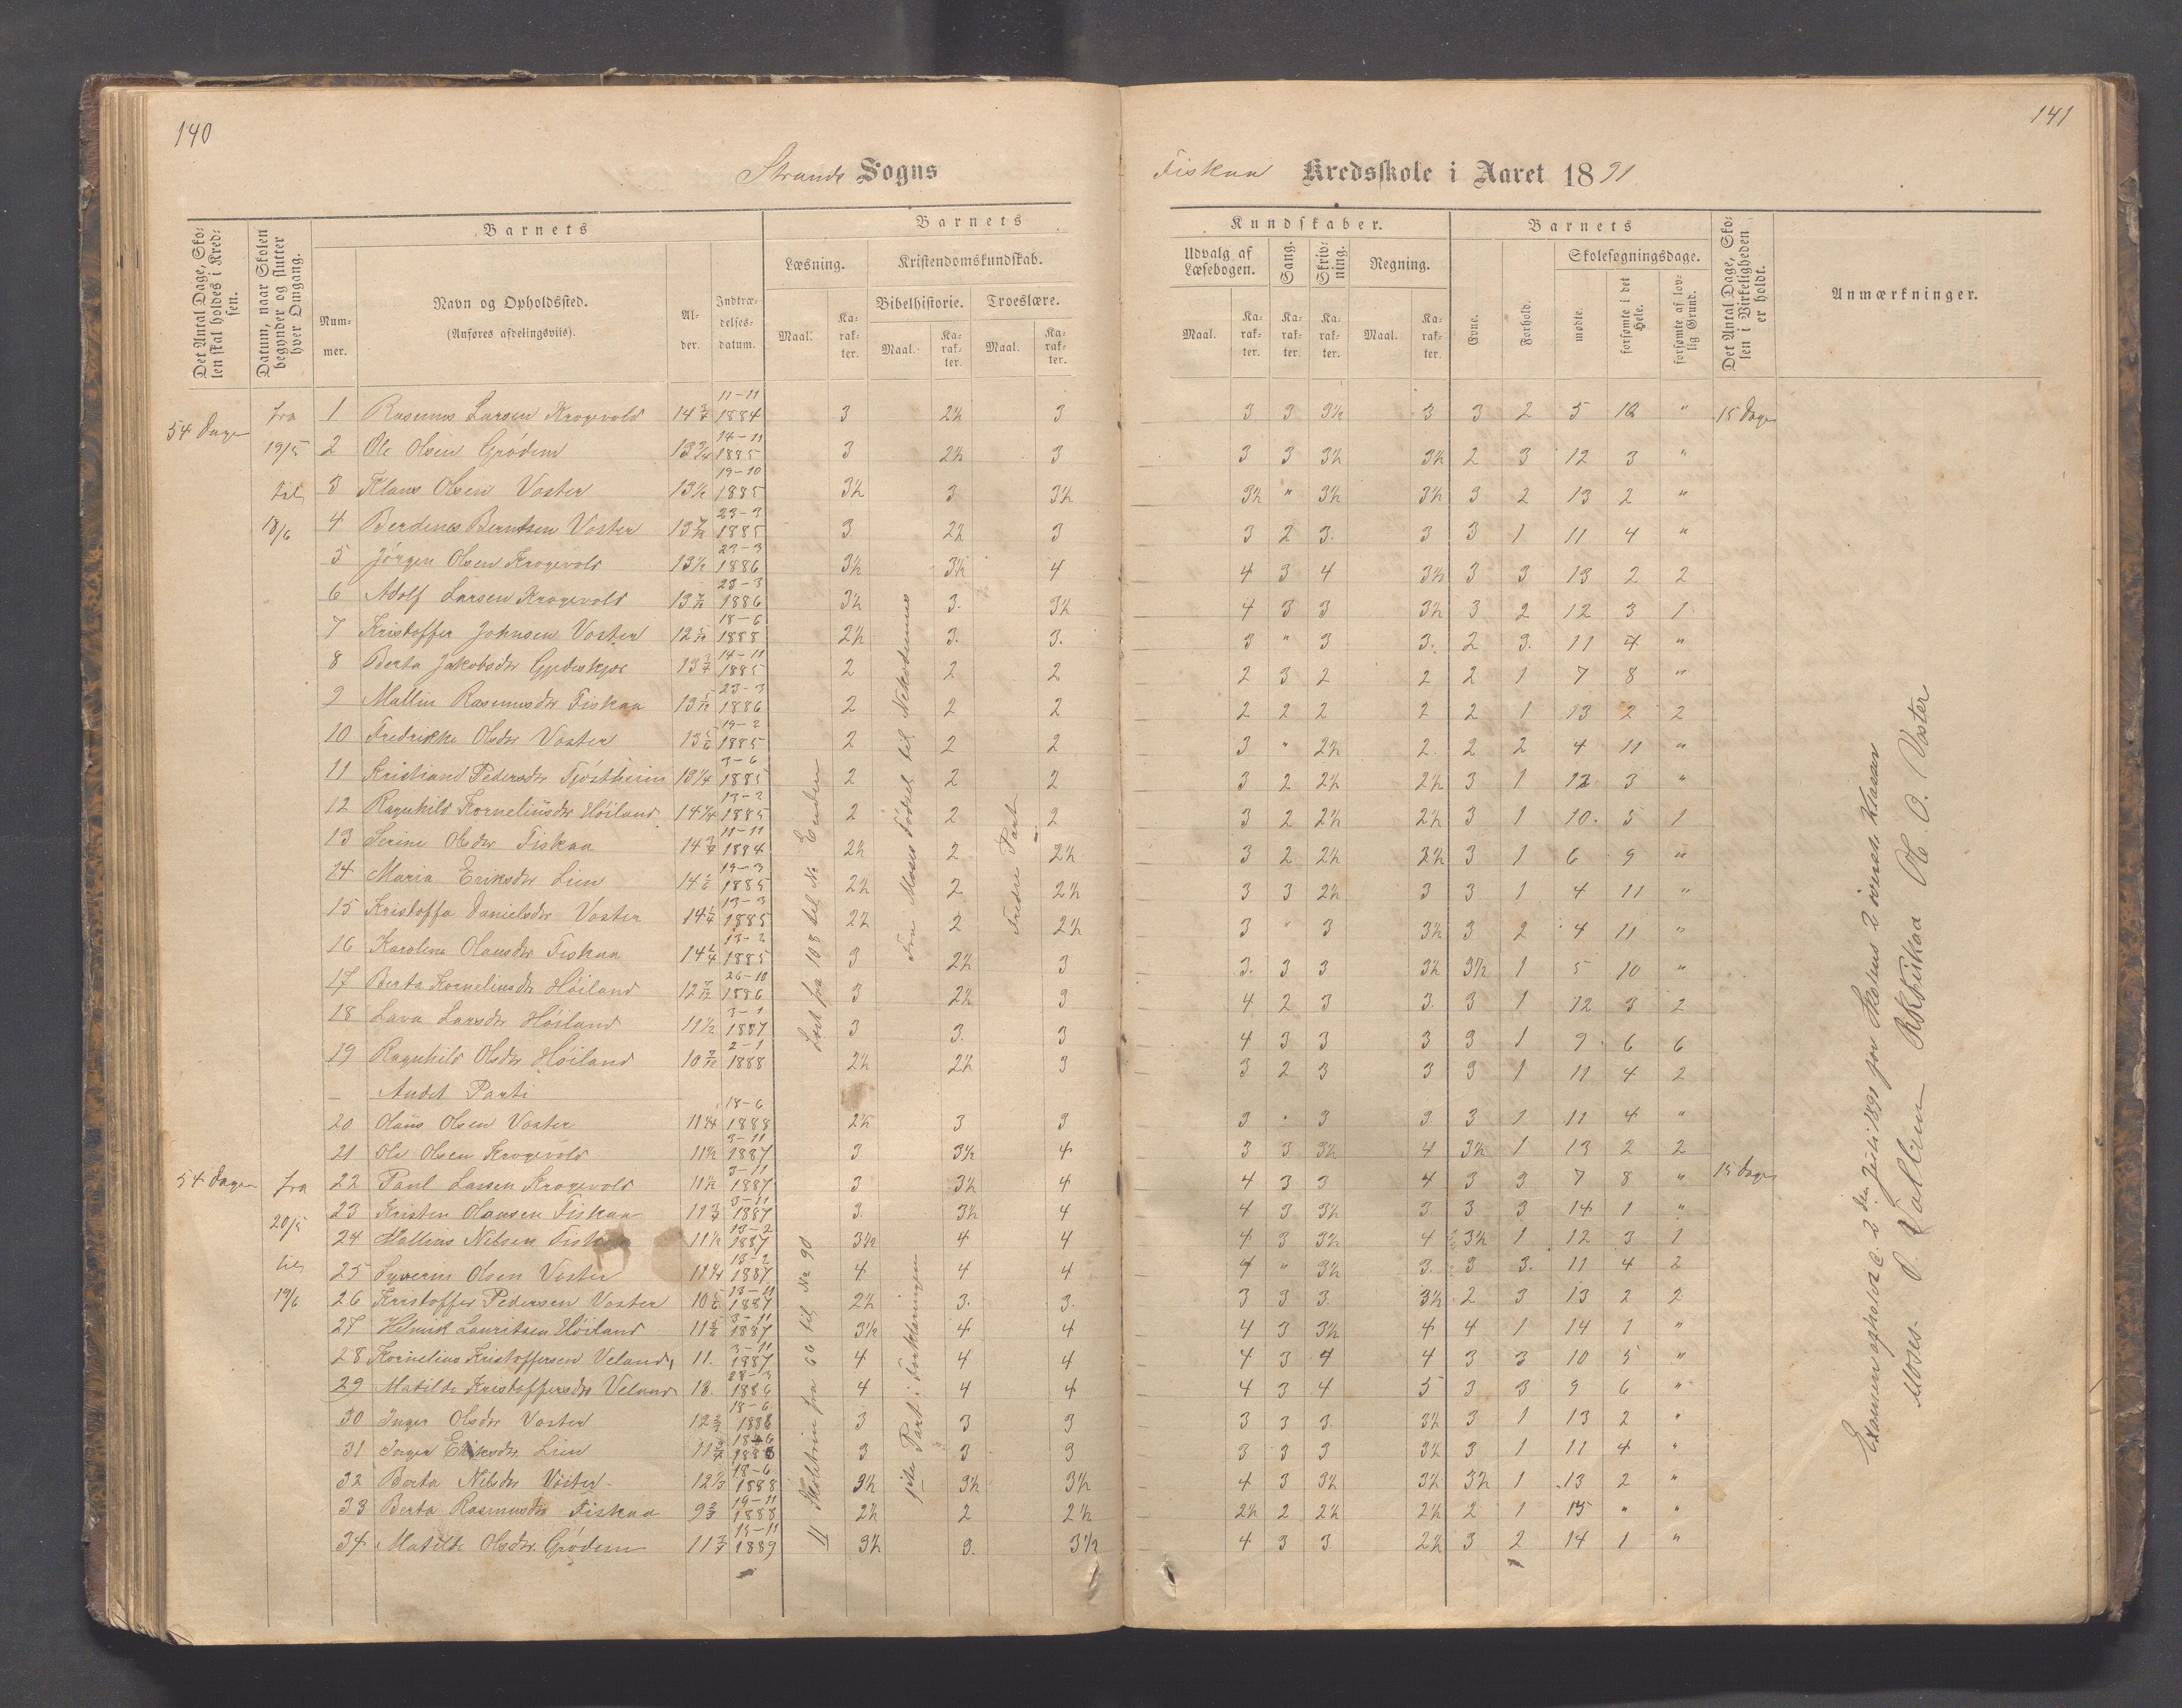 140
141
Strands Sogns
Fiskaa Kredsskole i Aaret 1891
Det Antal Dage, Skolen skal holdes i Kredsen.
Datum, naar Skolen begynder og slutter hver Omgang.
Barnets
Nummer.
Navn og Opholdssted.
(Anføres afdelingsviis).
Alder.
Indtrædelsesdatum.
Barnets
Læsning.
Kristendomskundskab.
Bibelhistorie.
Troeslære.
Maal.
Karakter.
Maal.
Karakter.
Maal.
Karakter.
Kundskaber.
Udvalg af Læsebogen.
Sang.
Skrivning.
Regning.
Maal.
Karakter.
Karakter.
Karakter.
Maal.
Karakter.
Barnets
Evne.
Forhold.
Skolesøgningsdage.
mødte.
forsømte i det Hele.
forsømte af lovlig Grund.
Det Antal Dage, Skolen i Virkeligheden er holdt.
Anmærkninger.
54 Dage fra 19/5 til 18/6
1 Rasmus Larsen Krogevold 14 3/4 11-11 1884 3 2½ 3 3 3 3½ 3 3 2 5 10 " 15 Dage
2 Ole Olsen Grödem 13 3/4 14-11 1885 3 2½ 3 3 3 3½ 3½ 2 3 12 3 "
3 Klaus Olsen Voster 13½ 19-10 1885 3½ 3 3½ 3½ " 3½ 3½ 3 2 13 2 "
4 Berdines Berntsen Voster 13 7/12 23-3 1885 3 2½ 3 3 2 3. 3 3 1 11 4 "
5 Jörgen Olsen Krogevold 13½ 23-3 1886 3½ 3½ 4 4 3 4 3½ 3 3 13 2 2
6 Adolf Larsen Krogevold 13 7/12 23-3 1886 3½ 3. 3½ 4 3 3 3½ 3 2 12 3 1
7 Kristoffer Johnsen Voster 12 18-6 1888 2½ 3. 3. 3 " 3 3. 2 3. 11 4 "
8 Berta Jakobsdtr 13 3/4 14-11 1885 2 2 2 2 3 2 2 2 1 7 8 "
9 Mallin Rasmusdtr Fiskaa 13 5/12 23-3 1886 2 2 2 2 2 2 2 2 1 13 2 2
10 Fredrikke Olsdtr Voster 13 19-2 1885 2 2 2 3 " 2½ 2. 2 2 4 11 "
11 Kristiane Pedersdtr Tjöstheim 13¼ 3-6 1885 2 2 2 3 2 2½ 2½ 3 1 12 3 "
12 Ragnhild Korneliusdtr Höiland 14¼ 13-2 1885 2 2 2 3 2 2½ 2½ 3 1 10. 5 1
13 Serine Olsdtr Fiskaa 14 3/4 11-11 1884 2½ 2 2½ 3 2 2½ 2½ 3 1 6 9 "
14 Maria Eriksdtr Lien 14 1/6 19-3 1885 2½ 2 2½ 3 3 2½ 3 3 1 4 11 "
15 Kristoffa Danielsdtr Voster 14¼ 13-3 1885 2½ 2 2½ 3 " 3 3½ 3 2 4 11 "
16 Karoline Hansdtr Fiskaa 14¼ 13-2 1885 3 2½ 3 3. 3 3 3½ 3½ 1 5 10 "
17 Berta Korneliusdtr Höiland 12 7/12 26-10 1886 3 2½ 3 4 2 3 3. 3 1 12 3 2
18 Lava Larsdtr Höiland 11½ 3-1 1887 3 3. 3 4 3 3 3 3 1 9 6 6
19 Ragnhild Olsdtr Höiland 10 7/12 2-1 1888 2½ 2½ 3 3 2 3 3 3 1 11 4 2
Læst fra 108 til No Enden
Fra Moses Fødsel til Nekodemus
Tredre Part
— Andet Parti
20 Hans Olsen Voster 11¼ 18-6 1888 2½ 3 3 3 " 3 3. 3 1 11 4 "
21 Ole Olsen Krogevold 11½ 3-11 1887 3 3½ 4 3 3 3½ 4 3½ 1 13 2 2
54 Dage fra 20/5 til 19/6
22 Paul Larsen Krogevold 11½ 3-11 1887 3 3½ 4 4 3 3 4 3 3 7 8 " 15 Dage
23 Kristen Hansen Fiskaa 11 3/4 3-11 1887 3. 3½ 4 4 3 3½ 3. 3 3 14 1 "
24 Mallius Nilsen Fiskaa 11½ 13-2 1887 3½ 4 4 4 3 3½ 4 3½ 1 12 3 1
25 Syverin Olsen Voster 11¼ 13-2 1887 4 4 4 4 " 3½ 3. 3 3. 11 4 2
26 Kristoffer Pedersen Voster 10 13-11 1887 2½ 3. 3. 3 3 3 3½ 2 3 13 2 2
27 Helmik Lauritsen Höiland 11 5/6 3-11 1887 3½ 4 4 4 3 3½ 4 4 1 14 1 "
28 Kornelius Kristoffersen Veland, 11. 3-11 1887 4 4 4 4 3 4 4 3 3 10 5 "
29 Matilde Kristoffersdtr Veland 13. 28-3 1886 4 4 4 4 3 4 5 3 3 9 6 "
30 Inger Olsdtr Voster 12 18-6 1888 3 3 3 3 3 3. 3½ 3 1 13 2 "
31 Inger Eriksdtr Lien 11 3/4 18-6 1888 3 3 3 3 3 3 3½ 3 1 11 4 "
32 Berta Nilsdtr Voster 12 1/3 18-6 1888 3½ 3½ 3½ 4 3 3½ 3½ 3½ 1 13 2 "
33 Berta Rasmusdtr Fiskaa 9 19-11 1888 2½ 2 2½ 2½ 2 2½ 2½ 2 1 15 " "
34 Matilde Olsdtr. Grödem 11 3/4 15-11 1889 3½ 3. 3½ 4 3 3 2½ 3 2 14 1 "
fra 66 til No 90
1ste Part i Forklaringen
Examen afholdt d. 2 den Juli 1891 for Skolens 2 överste Klasser
Moses. P. Vallem RKFiskaa Ole O. Voster